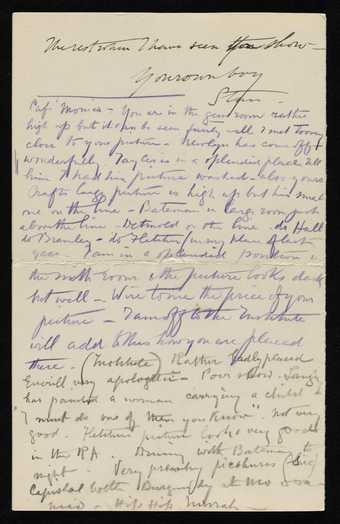 The rest when I have seen you show —
Your own boy
Stan
Café Monico — You are in the Gem room rather
high up but it can be seen fairly well & not too
close to your picture — Newlyn has come off
wonderfully — Tayler is in a splendid place tell
him I had his picture washed — also yours
Craft's large picture is high up but his small
one on the line — Bateman in large room just
above the line — Detmold on the line — do Hall
do Bramley — do Fletcher in my place of last
year. I am in a splendid position in
the North Room & the picture looks dark
but well — Wire to me the price of your
picture — I am off to the Institute
will add to this how you are placed
there — (Institute) Rather badly placed
very apologetic — Poor show — Lang
has painted a woman carrying a child
"I must do one of them you know". Not very
good. Fletcher's picture looks very good
in the RA. Dining with Bateman to
night. Very pressing
Capital bottle Burgundy at
Hip Hip Hurrah —